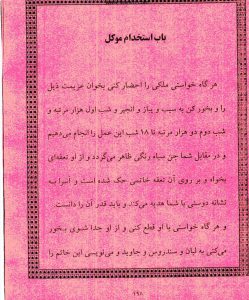 باب استخدام موکل
هر گاه خواستی ملکی را احضار کنی بخوان عزیمت ذیل
را و بخور کن به سیب و پیاز و انجیر و شب اول هزار مرتبه و
شب دوم دو هزار مرتبه تا ۱۸ شب این عمل را انجام میدهیم
و در مقابل شما جن سیاه رنگی ظاهر میگردد و از او تحفه‌ای
بخواه و بر روی آن تحفه خاتمی حک شده است و آنرا به
نشانه دوستی با شما هدیه می‌کند و باید قدر آن را دانست.
و هر گاه خواستی با او قطع کنی و از او جدا شوی بخور
می‌کنی به لبان و سندروس و جاوید و می‌نویسی این خاتم را
۱۹۸